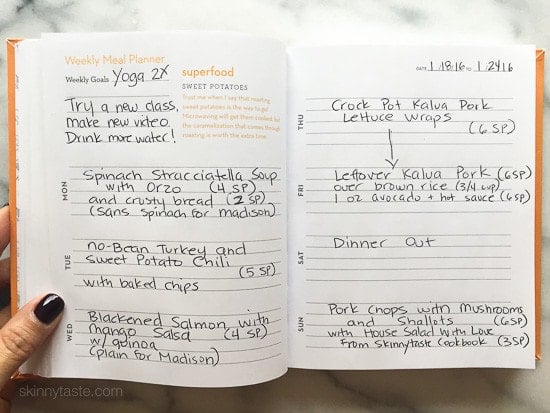 Weekly Meal Planner
Weekly Goals Yoga 2X
Try a new class,
make new video.
Drink more water!
superfood
SWEET POTATOES
Trust me when I say that roasting
sweet potatoes is the way to go!
Microwaving will get them cooked, but
the caramelization that comes through
roasting is worth the extra time.
MON
Spinach Stracciatella Soup
with Orzo (4 SP)
and crusty bread (2 SP)
(sans spinach for madison)
TUE
no-Bean Turkey and
Sweet Potato Chili
(5 SP)
with baked chips
WED
Blackened Salmon with
mango Salsa (4 SP)
w/ quinoa
(plain for Madison)
DATE 1/18/16 TO 1/24/16
THU
Crock Pot Kalua Pork
Lettuce Wraps
(6 SP)
FRI
Leftover Kalua Pork (6SP)
over brown rice (3/4 cup)
1 oz avocado + hot sauce (6SP)
SAT
Dinner Out
SUN
Pork Chops with Mushrooms
and Shallots (6SP)
with House Salad With Love
From Skinnytaste Cookbook (3SP)
skinnytaste.com